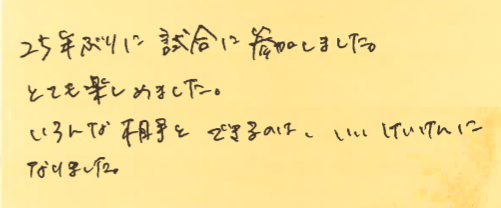 25年ぶりに試合に参加しました。
とても楽しめました。
いろんな相手とできるのは、いいけいけんに
なりました。